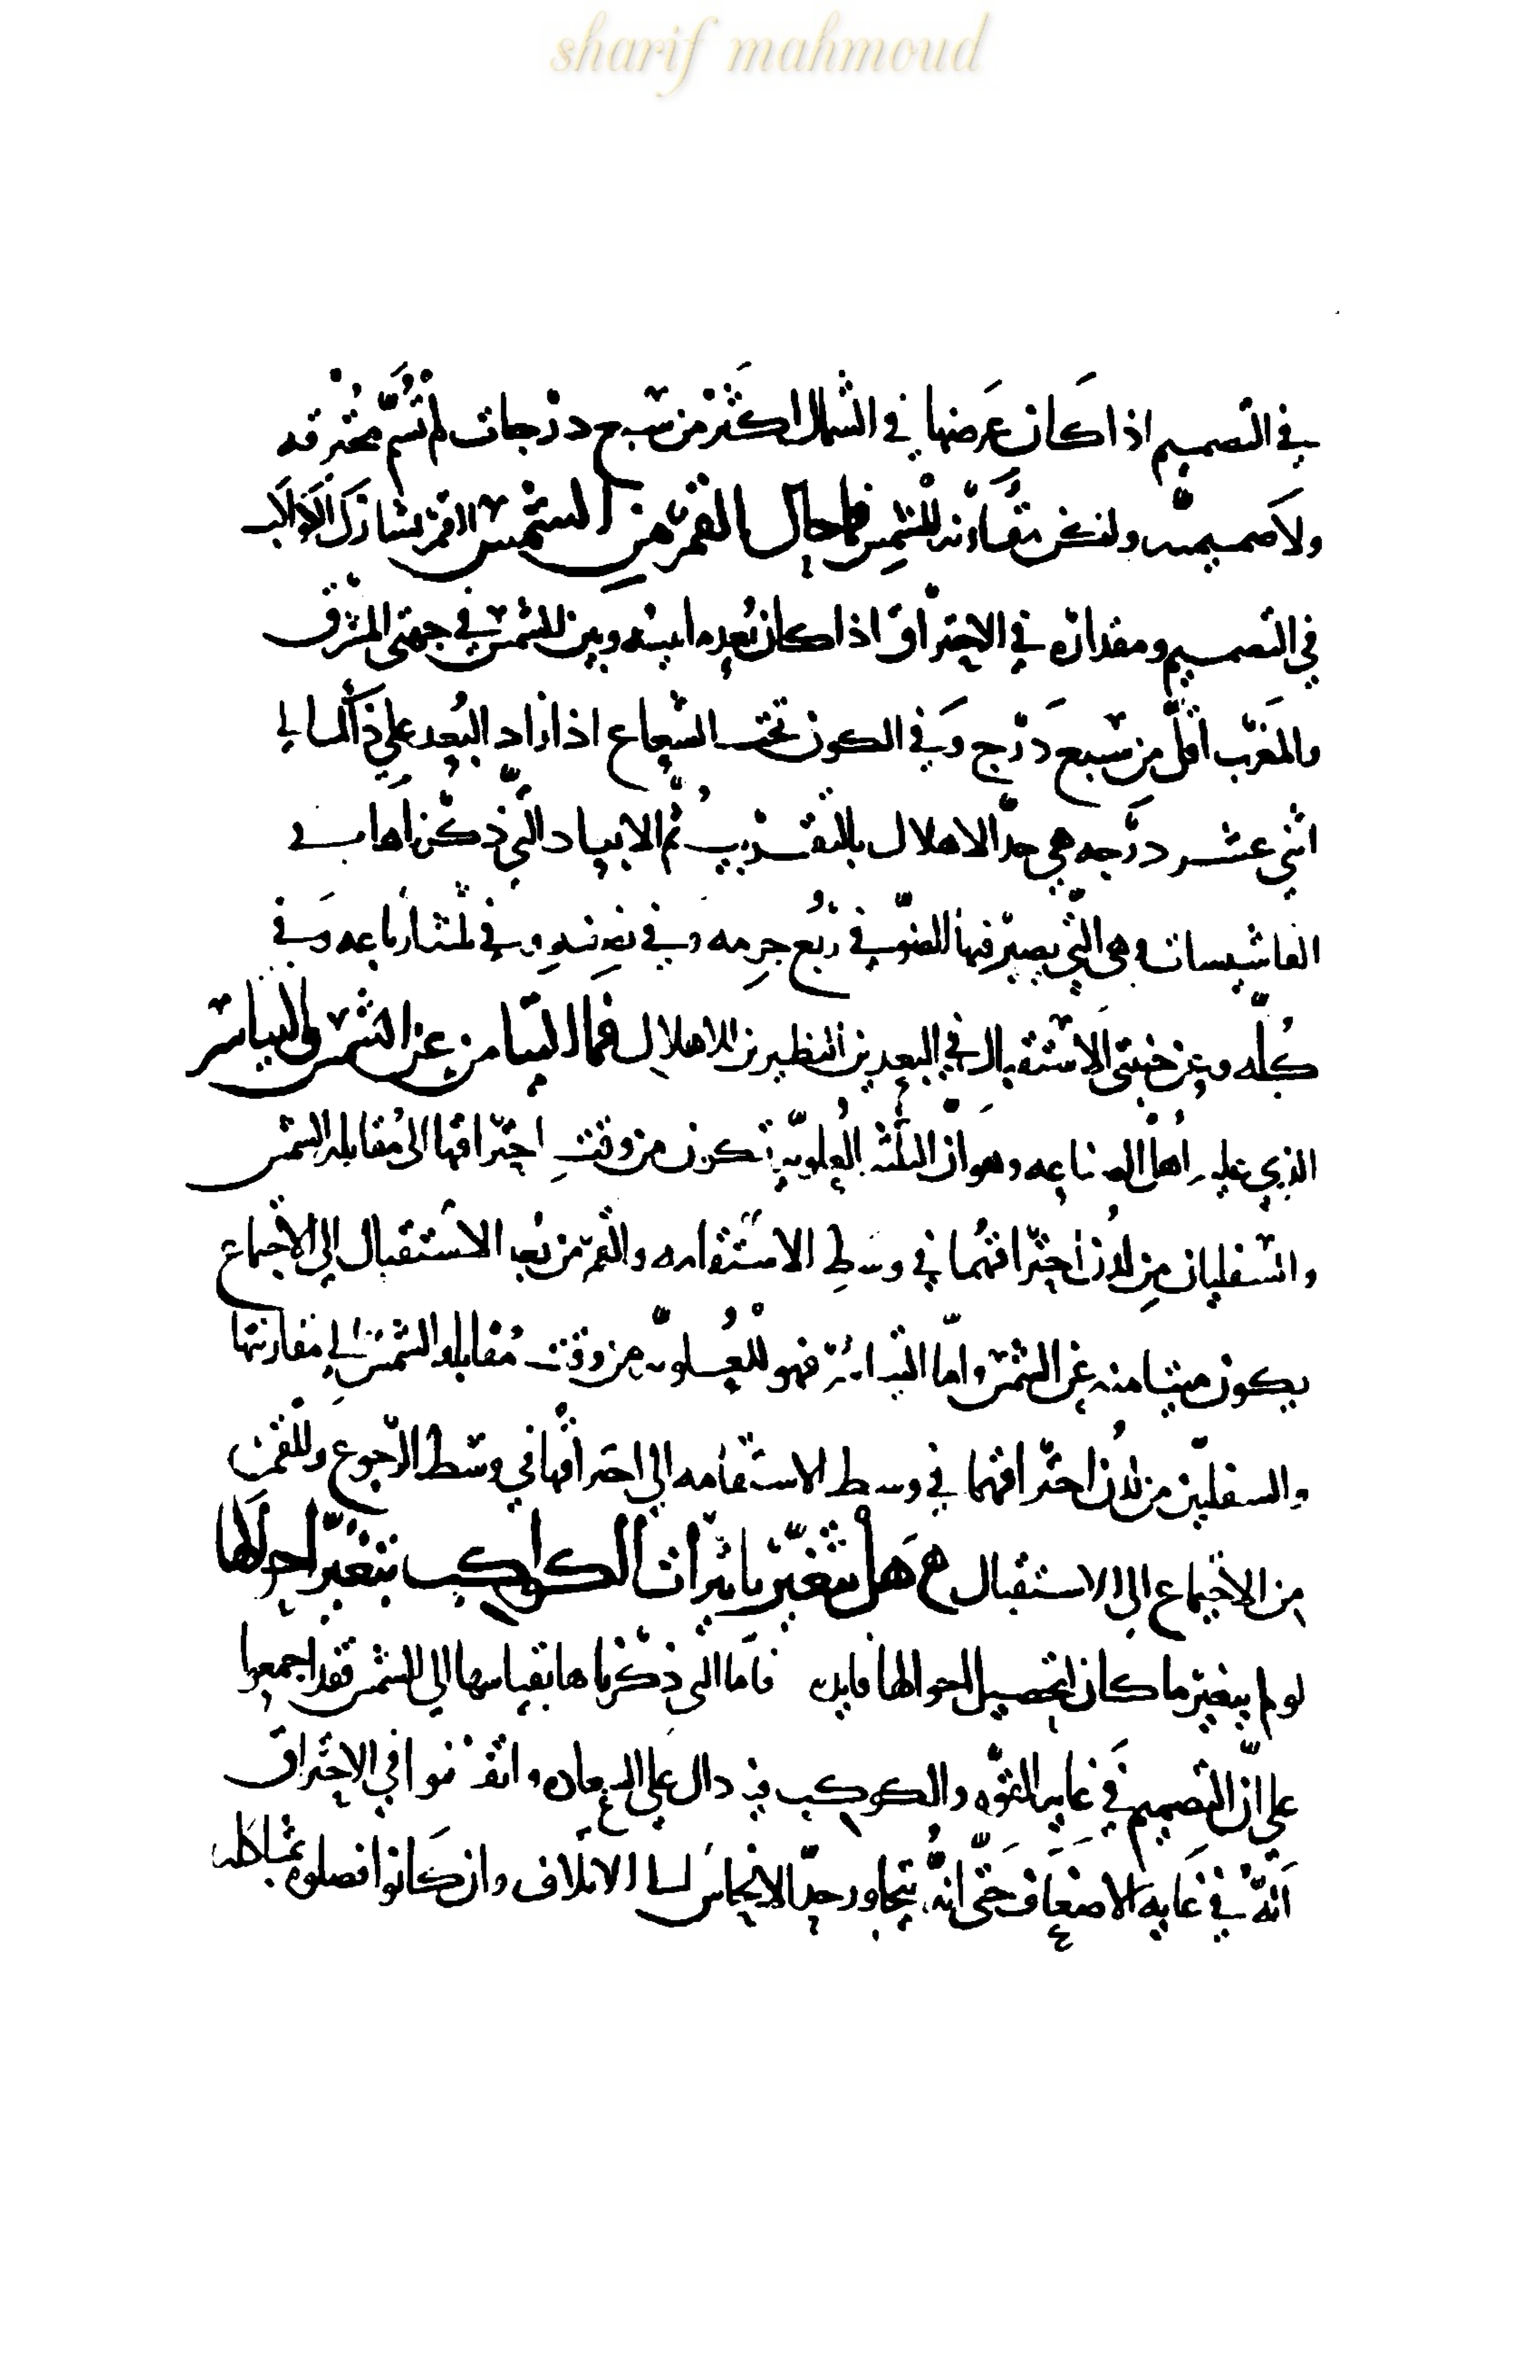 sharif mahmoud
في التصميم اذا كان عرضها في الشمال اكثر من سبع درجات لم تُسمّ محترقه
ولا صميميّه ولتكن مقارنه للشمس فما حال القمر من الشمس القمر يشارك الكواكب
في التصميم ومقدارُه في الاحتراق اذا كان بُعد ما بينه وبين الشمس في جهتي المشرق
والمغرب اقلّ من سبع درج وفي الكون تحت الشعاع اذا زاد البُعد على ذلك الى
اثني عشر درجه هي حدّ الاهلال بالتقريب ثم الابعاد الّتي ذكرناها في
الفاسيسات وهي الّتي يصير فيها الضوّ في رُبع جرمه وفي نصفه وفي ثلثه ارباعه وفي
كلّه وعن جنبتي الاستقبال في البعدين النظيرين للاهلال فما التيامن عن الشمس والتياسر
الذي عليه اهل الصناعه وهو انّ الثلثه العلويّه تكون من وقت احتراقها الى مُقابله الشمس
والسفليان من لدُن احتراقهما في وسط الاستقامه والقمر من بعد الاستقبال الى الاجتماع
يكون متيامنه عن الشمس وامّا التياسر فهو للعُلويّه من وقت مُقابله الشمس الى مقارنتها
والسفليّين من لدُن احتراقهما في وسط الاستقامه الى احتراقهما في وسط الرجوع وللقمر
من الاجتماع الى الاستقبال هل تتغيّر تاثيرات الكواكب بتغيّر احوالها
لو لم يتغير ما كان لتحصيل احوالها فايده فامّا التي ذكرناها بقياسها الى الشمس فقد اجمعوا
على انّ التصميم في غايه القوّه والكوكب فيه دال على السعاده واتفقوا في الاحتراق
انّهُ في غايه الاضعاف حتّى انّه يتجاوز حدّ الانحاس الى الاتلاف وان كانوا فصلوه